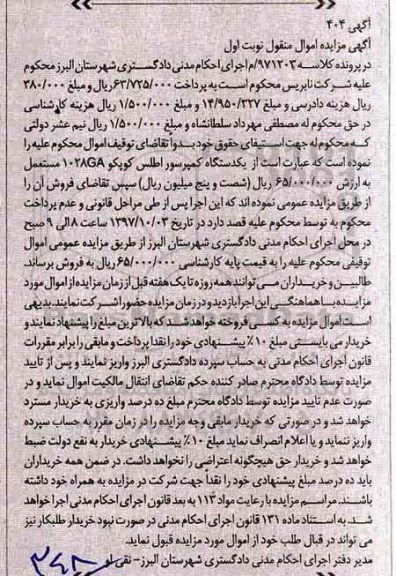 آگهی ۴۰۴
آگهی مزایده اموال منقول نوبت اول
در پرونده کلاسه ۹۷۱۲۰۳/م اجرای احکام مدنی دادگستری شهرستان البرز محکوم
علیه شرکت نابریس محکوم است به پرداخت ۶۳/۷۲۵/۰۰۰ ریال و مبلغ ۳۸۰/۰۰۰
ریال هزینه دادرسی و مبلغ ۱۴/۹۵۰/۳۲۷ و مبلغ ۱/۵۰۰/۰۰۰ ریال هزینه کارشناسی
در حق محکوم له مصطفی مهرداد سلطانشاه و مبلغ ۱/۵۰۰/۰۰۰ ریال نیم عشر دولتی
که محکوم له جهت استیفای حقوق خود بدوا تقاضای توقیف اموال محکوم علیه را
نموده است که عبارت است از یکدستگاه کمپرسور اطلس کوپکو ۱۰۲۸GA مستعمل
به ارزش ۶۵/۰۰۰/۰۰۰ ریال (شصت و پنج میلیون ریال) سپس تقاضای فروش آن را
از طریق مزایده عمومی نموده اند که این اجرا پس از طی مراحل قانونی و عدم پرداخت
محکوم به توسط محکوم علیه قصد دارد در تاریخ ۱۳۹۷/۱۰/۰۳ ساعت ۸ الی ۹ صبح
در محل اجرای احکام مدنی دادگستری شهرستان البرز از طریق مزایده عمومی اموال
توقیفی محکوم علیه را به قیمت پایه کارشناسی ۶۵/۰۰۰/۰۰۰ ریال به فروش برساند.
طالبین و خریداران می توانند همه روزه تا یک هفته قبل از زمان مزایده از اموال مورد
مزایده با هماهنگی این اجرا بازدید و در زمان مزایده حضور اشرکت نمایند. بدیهی
است اموال مزایده به کسی فروخته خواهد شد که بالاترین مبلغ را پیشنهاد نمایند و
خریدار می بایستی مبلغ ۱۰٪ پیشنهادی خود را نقدا پرداخت و مابقی را برابر مقررات
قانون اجرای احکام مدنی به حساب سپرده دادگستری البرز واریز نمایند و پس از تایید
مزایده توسط دادگاه محترم صادر کننده حکم تقاضای انتقال مالکیت اموال نماید و در
صورت عدم تایید مزایده توسط دادگاه محترم مبلغ ده درصد واریزی به خریدار مسترد
خواهد شد و در صورتی که خریدار مابقی وجه مزایده را در زمان مقرر به حساب سپرده
واریز ننماید و یا اعلام انصراف نماید مبلغ ۱۰٪ پیشنهادی خریدار به نفع دولت ضبط
خواهد شد و خریدار حق هیچگونه اعتراضی را نخواهد داشت. در ضمن همه خریداران
باید ده درصد مبلغ پیشنهادی خود را نقداً جهت شرکت در مزایده به همراه خود داشته
باشند. مراسم مزایده با رعایت مواد ۱۱۳ به بعد قانون اجرای احکام مدنی اجرا خواهد
شد. به استناد ماده ۱۳۱ قانون اجرای احکام مدنی در صورت نبود خریدار طلبکار نیز
می تواند در قبال طلب خود از اموال مورد مزایده قبول نماید.
مدیر دفتر اجرای احکام مدنی دادگستری شهرستان البرز - تقی